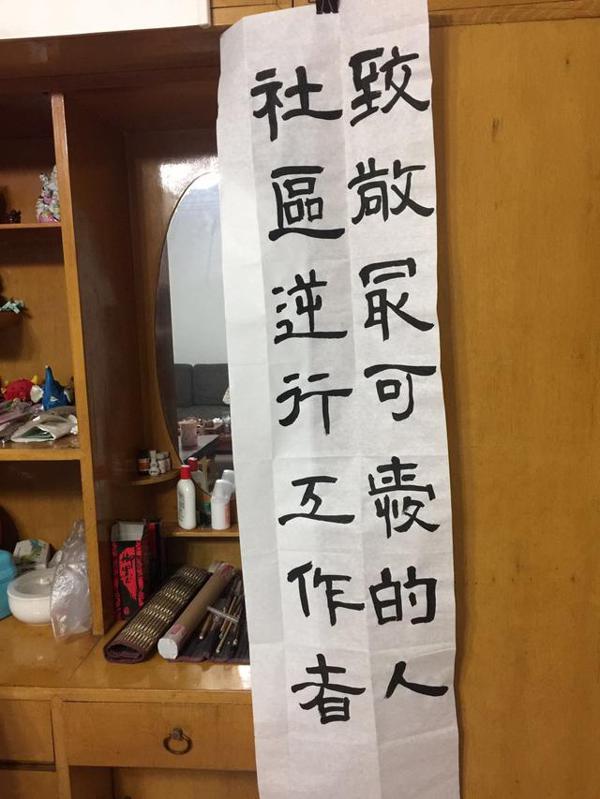 致敬最可愛的人
社區逆行工作者